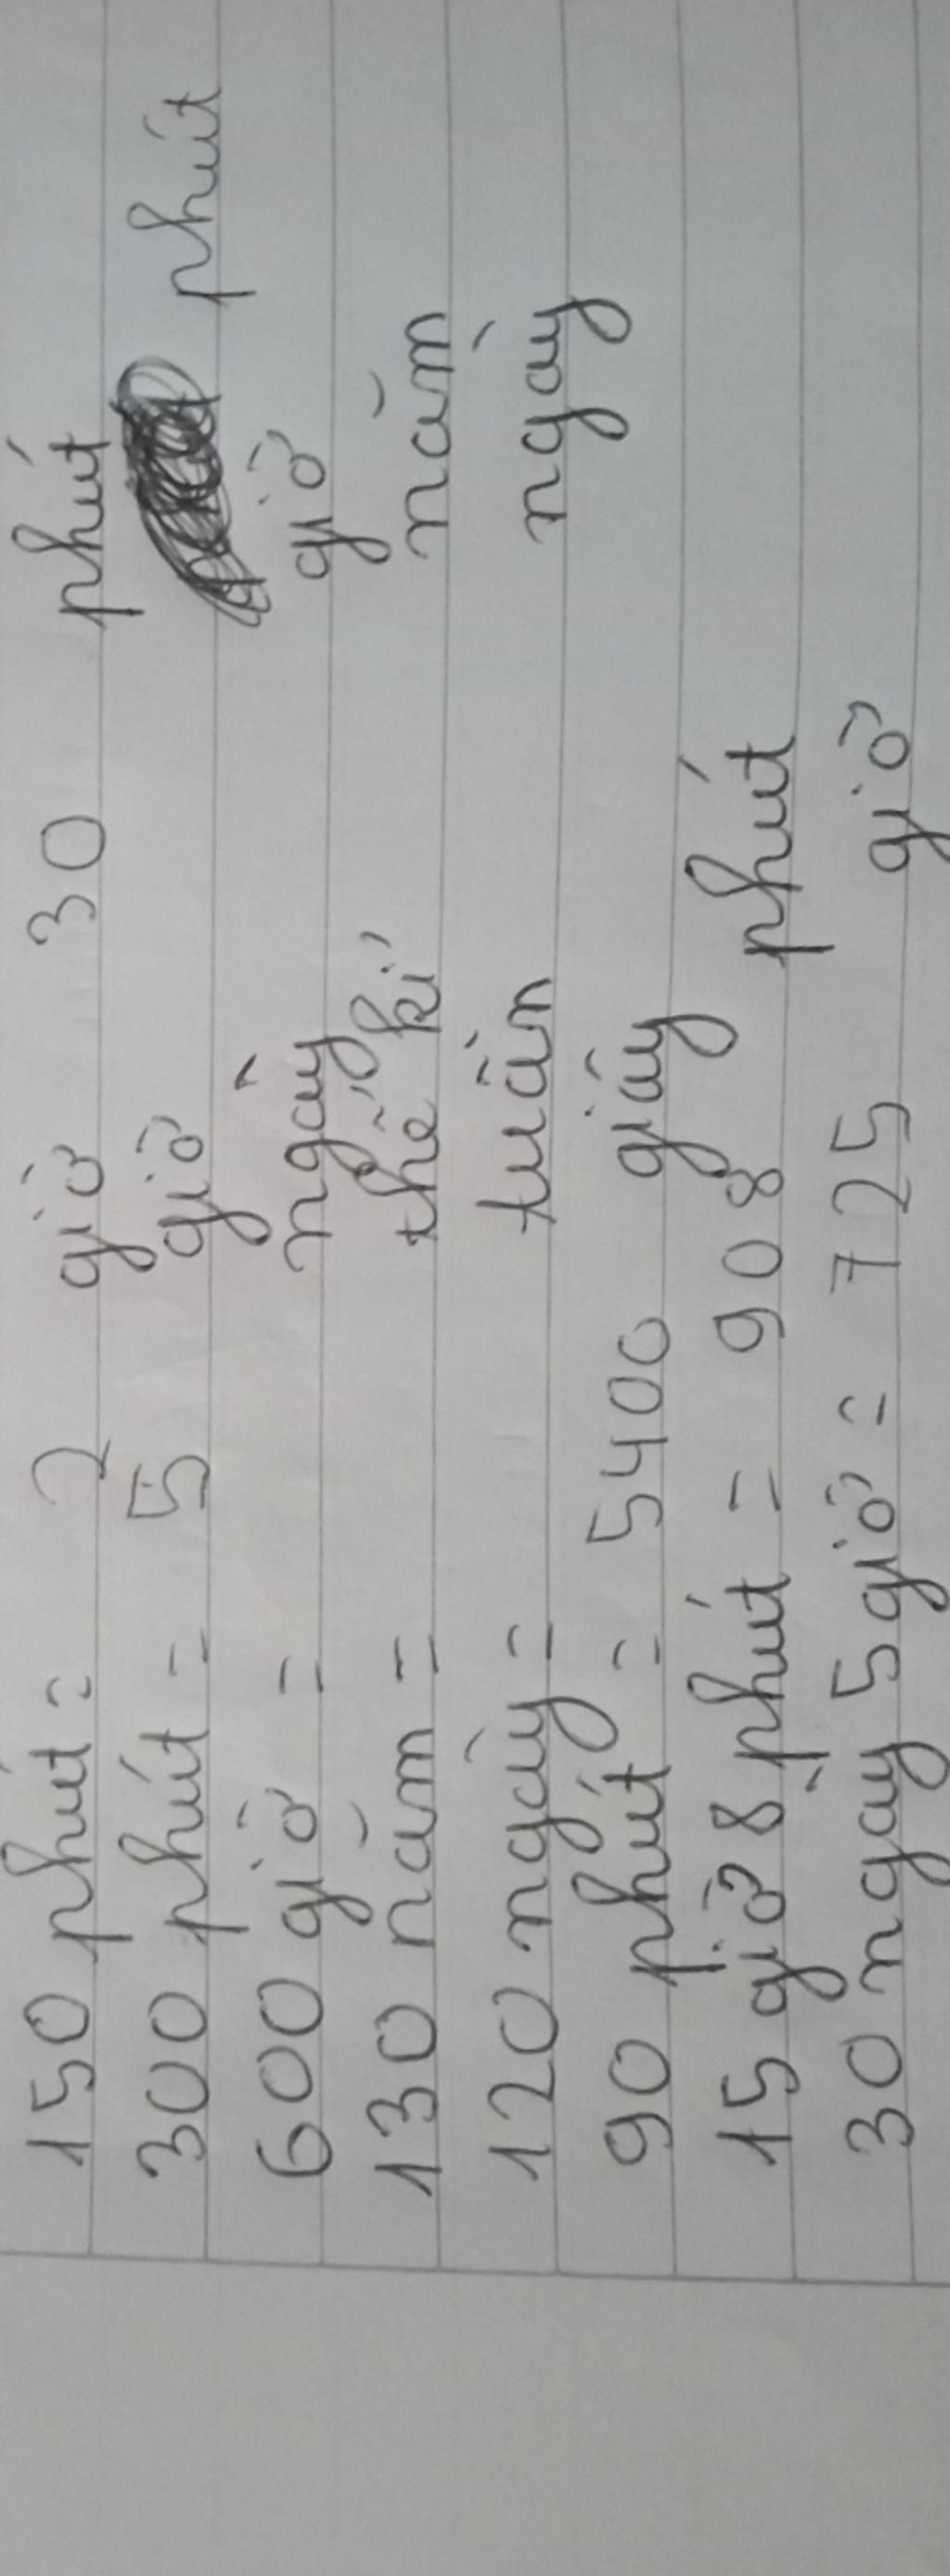 150 phút = 2 giờ 30 phút
300 phút = 5 giờ phút
600 giờ = ngày giờ
130 năm = thế kỉ năm
120 ngày = tuần ngày
90 phút = 5400 giây
15 giờ 8 phút = 908 phút
30 ngày 5 giờ = 725 giờ